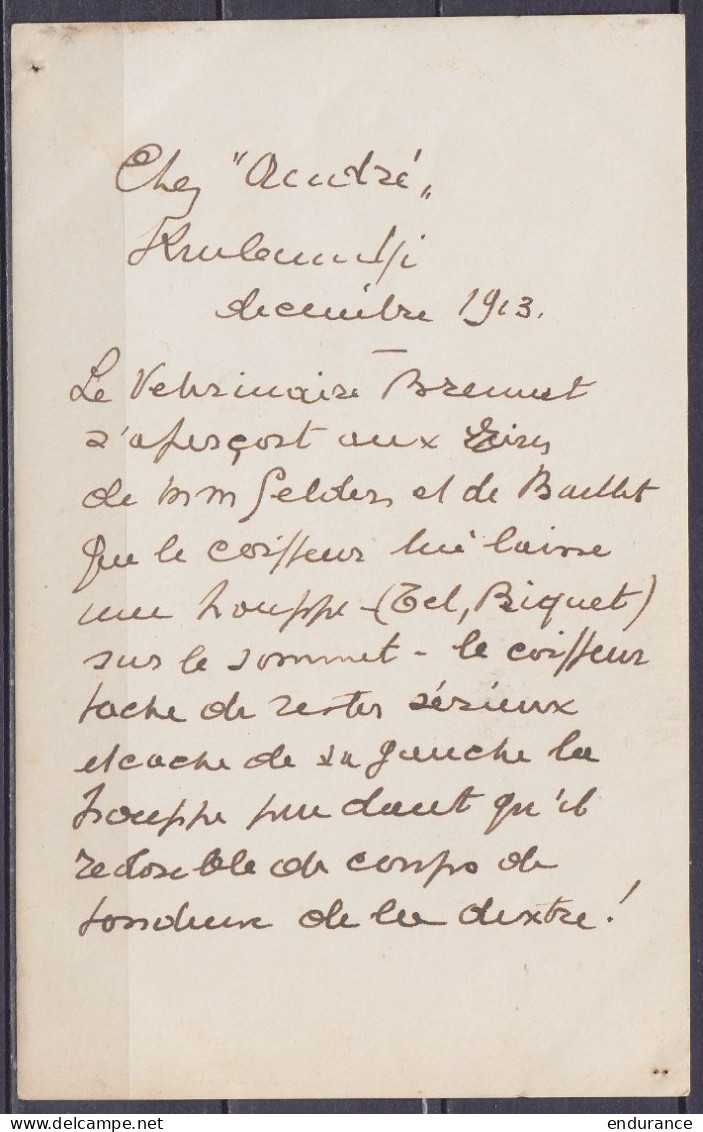 Chez "André"
décembre 1913.
Le Vetrinaire Bremut
s'aperçoit aux
de MM Gelders et de Baillet
que le coiffeur lui laisse
une houppe - (Tel, Biquet)
sur le sommet - le coiffeur
tache de rester sérieux
et cache de sa gauche la
houppe pendant qu'il
redouble de coups de
tondeuse de la dextre !
www.delcampe.net
endurance